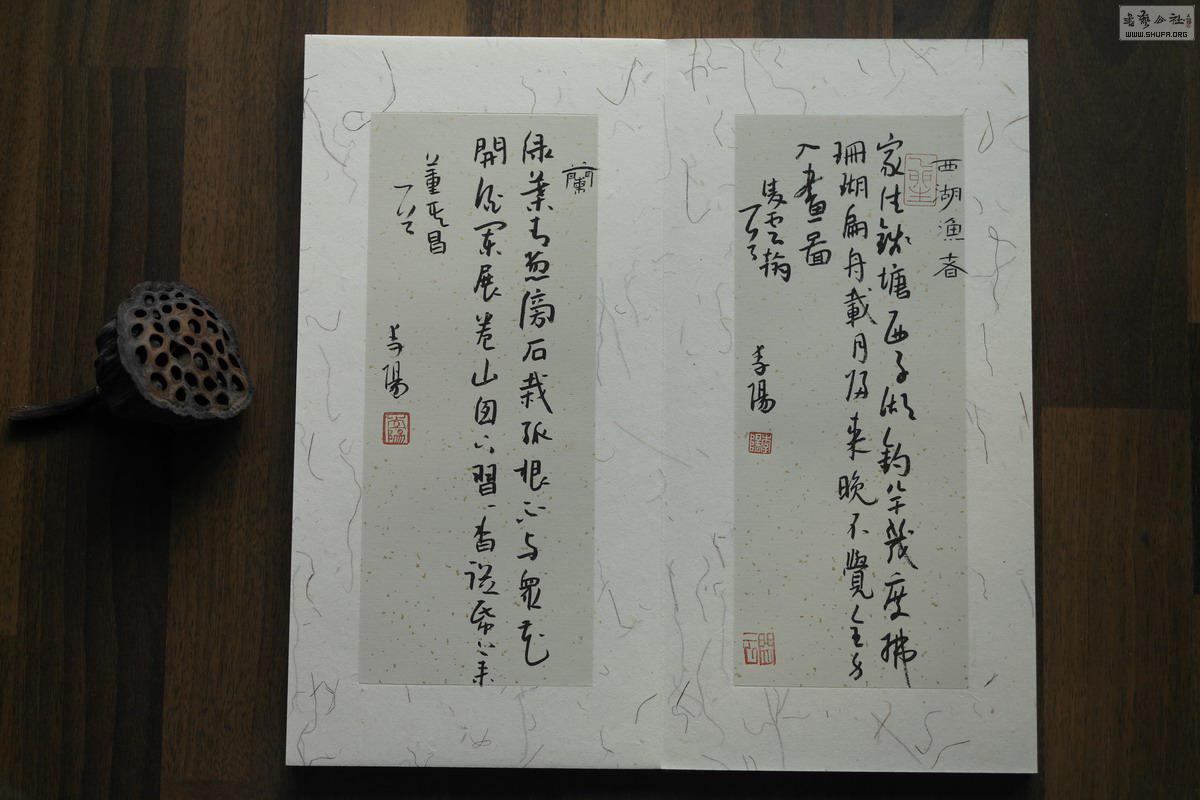 西湖漁者
家住錢塘西子湖釣竿幾度拂
珊瑚扁舟載月歸來晚不覺全身
入畫圖
凌雲翰
一首
李陽
蘭
绿葉青葱傍石栽孤根不与眾花
開酒闌展卷山囱下習〻香從紙上來
董其昌
一首
李陽
書藝公社
WWW.SHUFA.ORG